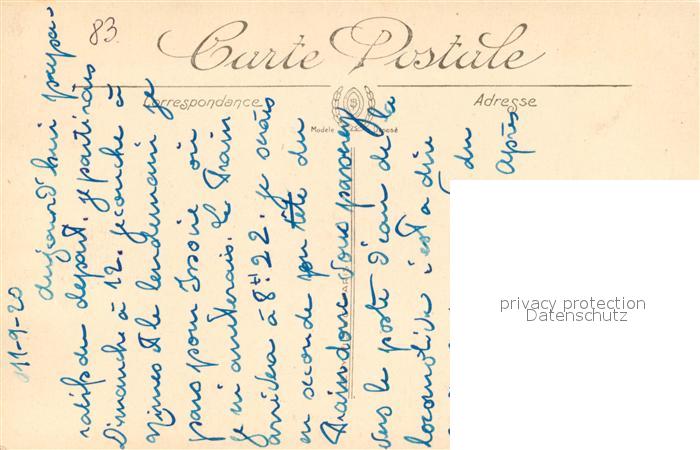 83
Carte Postale
Correspondance
Adresse
Modèle Déposé
11-9-20
Aujourd'hui prépa-
ratifs du départ. je partirais
Dimanche à 12. je couche à
Nimes et le lendemain je
pars pour Issoire où
je m'arrêterais. le Train
arrivera à 8h 22. je serais
en seconde en tête du
Train donc vous passerez
vers le poste d'eau de la
locomotive c'est à dire
du
Après
privacy protection
Datenschutz